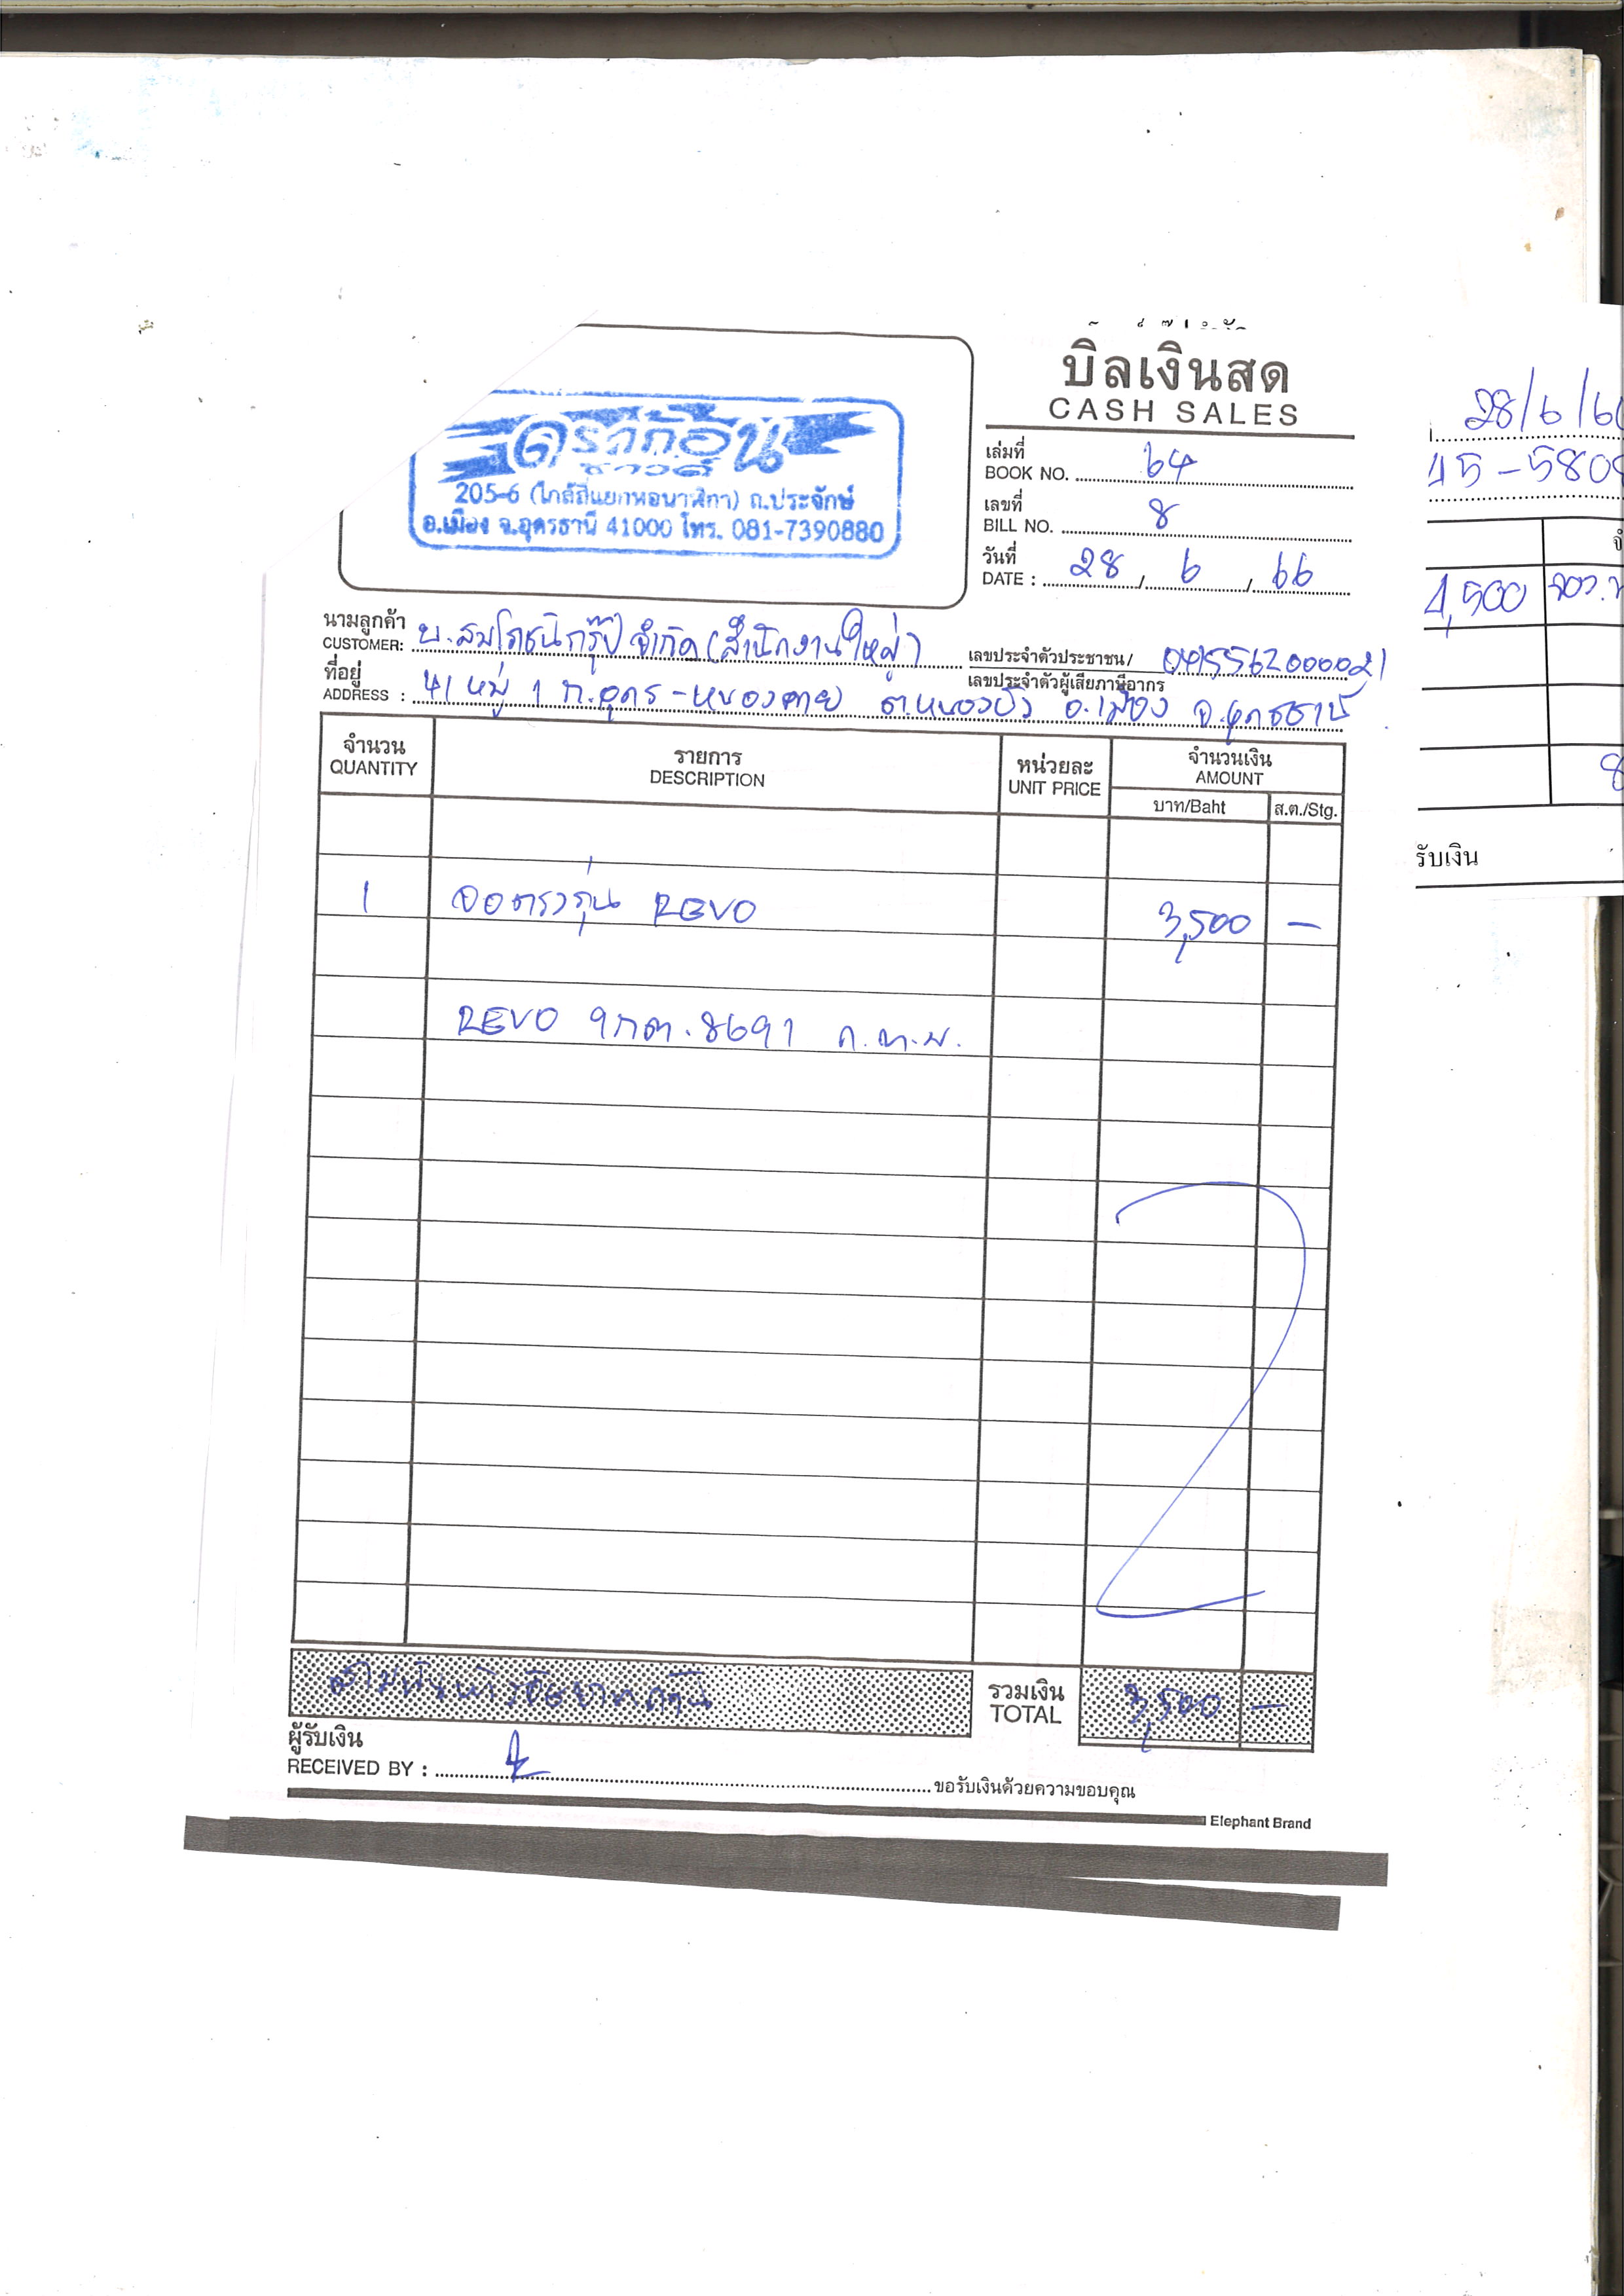 บิลเงินสด
CASH SALES
ดราก้อน
ซาวด์
205-6 (ใกล้สี่แยกหอนาฬิกา) ถ.ประจักษ์
อ.เมือง จ.อุดรธานี 41000 โทร. 081-7390880
เล่มที่
BOOK NO. 64
เลขที่
BILL NO. 8
วันที่
DATE : 28 / 6 / 66
นามลูกค้า
CUSTOMER: บ.สมโภชน์กรุ๊ป จำกัด (สำนักงานใหญ่)
เลขประจำตัวประชาชน/
เลขประจำตัวผู้เสียภาษีอากร 0415562000021
ที่อยู่
ADDRESS : 41 หมู่ 1 ถ.อุดร-หนองคาย ต.หนองบัว อ.เมือง จ.อุดรธานี
จำนวน รายการ หน่วยละ จำนวนเงิน
QUANTITY DESCRIPTION UNIT PRICE AMOUNT
บาท/Baht ส.ต./Stg.
1 จอตรงรุ่น REVO 3,500 -
REVO 9กต.8691 ก.ท.ม.
สามพันห้าร้อยบาทถ้วน
รวมเงิน
TOTAL 3,500 -
ผู้รับเงิน
RECEIVED BY : ขอรับเงินด้วยความขอบคุณ
Elephant Brand
28/6/6
45-580
4,500
8
รับเงิน